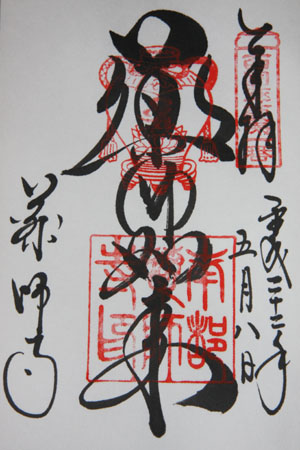 奉拝
平成二十二年
五月八日
薬師如来
薬師寺